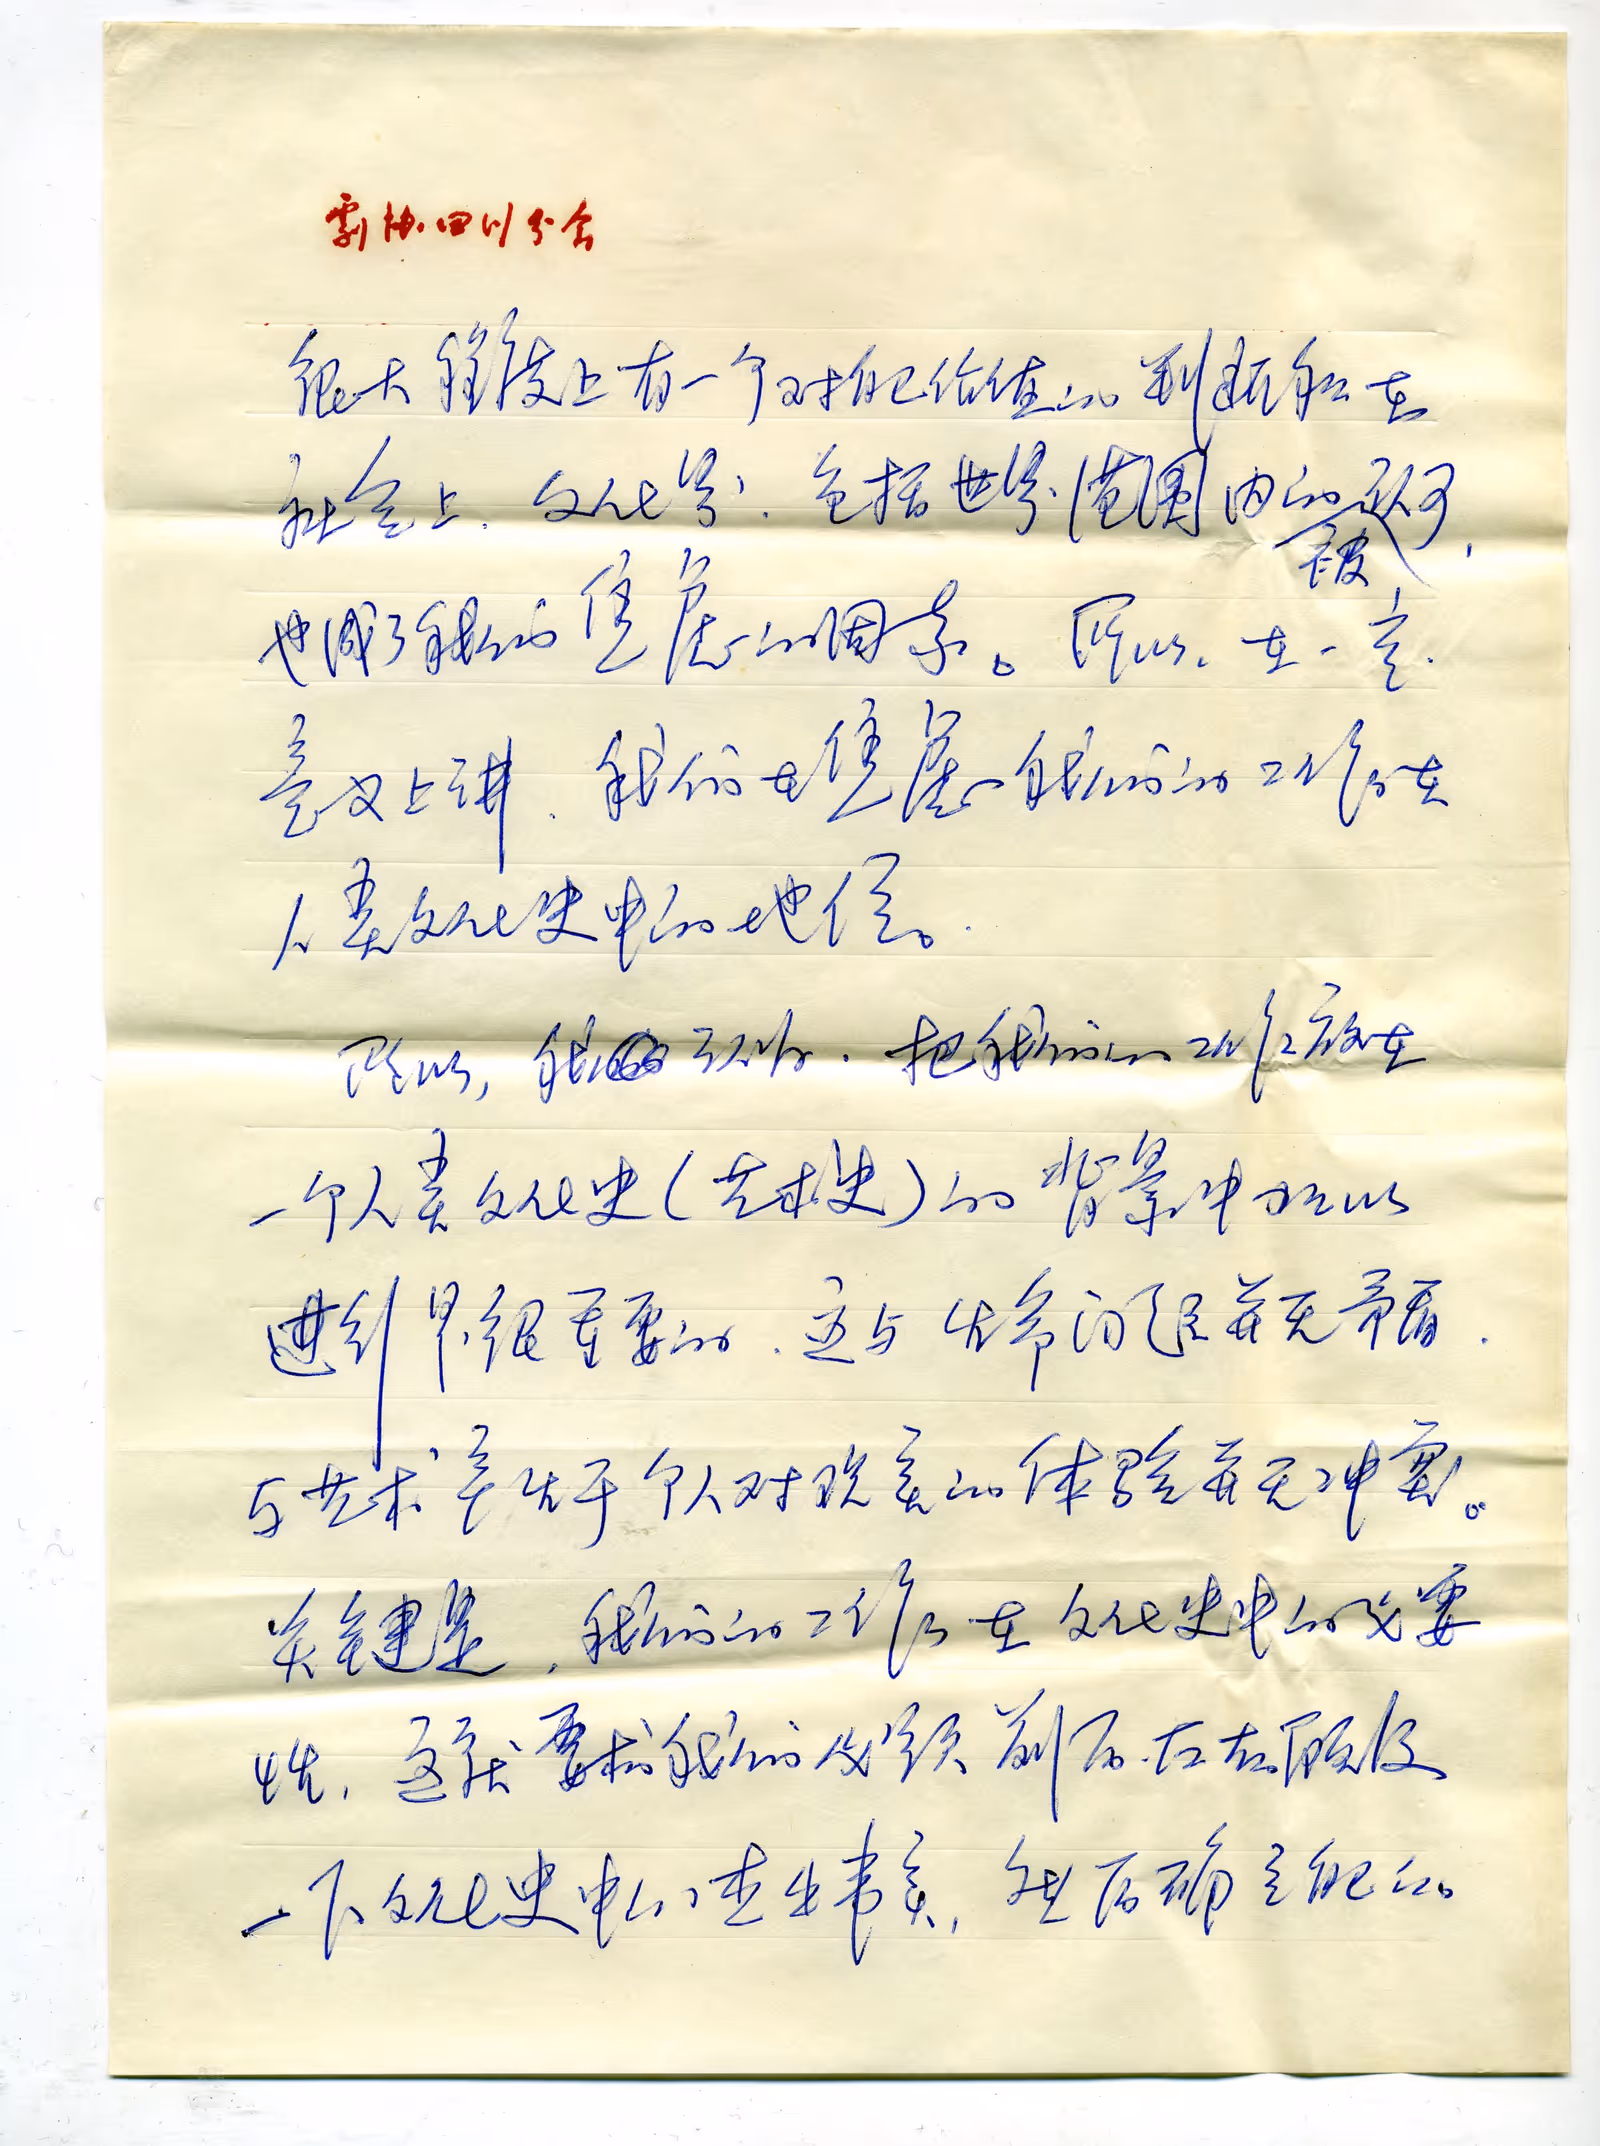 劇协四川分会
很大程度上有一个对自己价值的判断和在
社会上、文化界、包括世界范围内的被认可,
也成了我们焦虑的因素。所以,在一定
意义上讲,我们在焦虑我们的工作在
人类文化史中的地位。
所以,我认为,把我们的工作放在
一个人类文化史(艺术史)的背景中加以
进行是很重要的,这与生命问题并无矛盾,
与艺术产生于个人对现实的体验并无冲突。
关键是,我们的工作在文化史中的必要
性,这就要求我们必须前后左右顾及
一下文化史中的发生事实,然后确立自己的